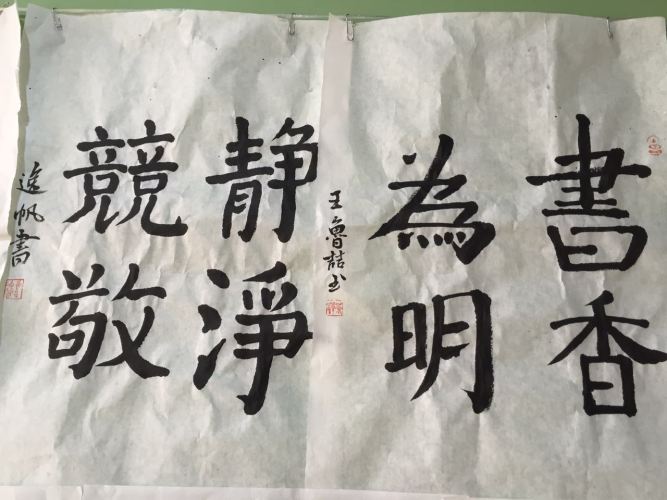 書香
為明
王魯喆书
静淨
競敬
逸帆書